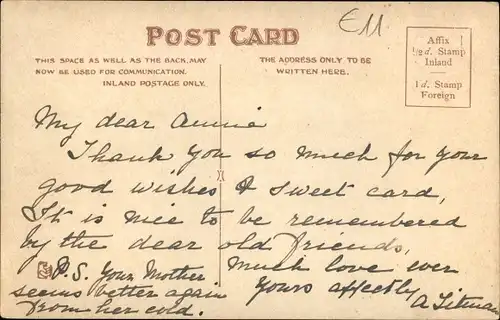 E11
POST CARD
THIS SPACE AS WELL AS THE BACK, MAY
NOW BE USED FOR COMMUNICATION.
INLAND POSTAGE ONLY.
THE ADDRESS ONLY TO BE
WRITTEN HERE.
Affix
½d. Stamp
Inland
1d. Stamp
Foreign
My dear Annie
Thank you so much for your
good wishes & sweet card,
It is nice to be remembered
by the dear old friends,
Much love ever
Yours affectly
A
P.S. Your Mother
seems better again
from her cold.